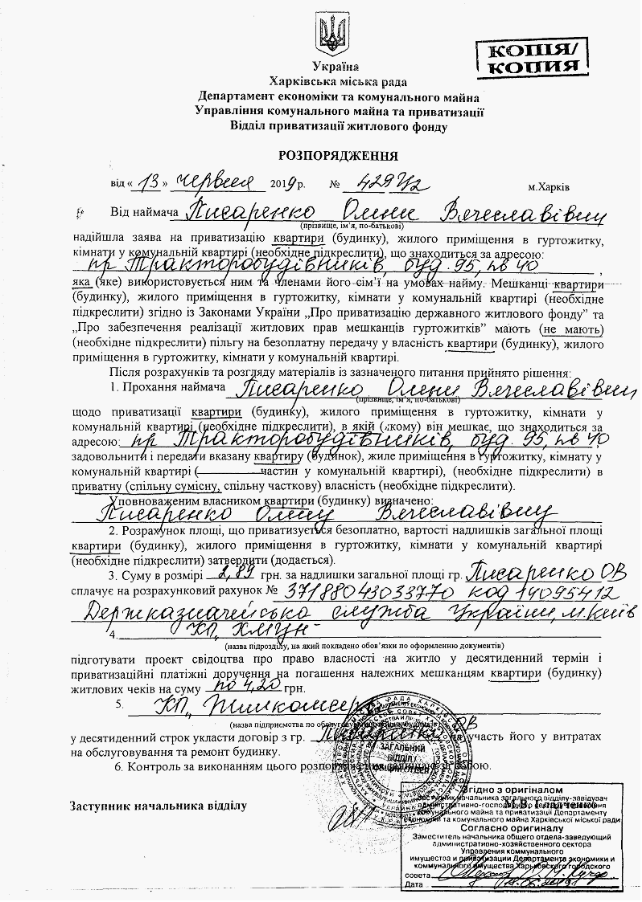 КОПІЯ/
КОПИЯ
Україна
Харківська міська рада
Департамент економіки та комунального майна
Управління комунального майна та приватизації
Відділ приватизації житлового фонду
РОЗПОРЯДЖЕННЯ
від « 13 » червня 2019 р. № 429 м.Харків
Від наймача Писаренко Олени Вячеславівни
(прізвище, ім'я, по-батькові)
надійшла заява на приватизацію квартири (будинку), жилого приміщення в гуртожитку,
кімнати у комунальній квартирі (необхідне підкреслити), що знаходиться за адресою:
пр. Тракторобудівників, буд. 95, кв 40 ,
яка (яке) використовується ним та членами його сім'ї на умовах найму. Мешканці квартири
(будинку), жилого приміщення в гуртожитку, кімнати у комунальній квартирі (необхідне
підкреслити) згідно із Законами України „Про приватизацію державного житлового фонду" та
„Про забезпечення реалізації житлових прав мешканців гуртожитків" мають (не мають)
(необхідне підкреслити) пільгу на безоплатну передачу у власність квартири (будинку), жилого
приміщення в гуртожитку, кімнати у комунальній квартирі.
Після розрахунків та розгляду матеріалів із зазначеного питання прийнято рішення:
1. Прохання наймача Писаренко Олени Вячеславівни
(прізвище, ім'я, по-батькові)
щодо приватизації квартири (будинку), жилого приміщення в гуртожитку, кімнати у
комунальній квартирі (необхідне підкреслити), в якій (якому) він мешкає, що знаходиться за
адресою: пр. Тракторобудівників, буд. 95, кв 40
задовольнити і передати вказану квартиру (будинок), жиле приміщення в гуртожитку, кімнату у
комунальній квартирі ( частин у комунальній квартирі), (необхідне підкреслити) в
приватну (спільну сумісну, спільну часткову) власність (необхідне підкреслити).
Уповноваженим власником квартири (будинку) визначено:
Писаренко Олену Вячеславівну
2. Розрахунок площі, що приватизується безоплатно, вартості надлишків загальної площі
квартири (будинку), жилого приміщення в гуртожитку, кімнати у комунальній квартирі
(необхідне підкреслити) затвердити (додається).
3. Суму в розмірі 2,89 грн. за надлишки загальної площі гр. Писаренко ОВ
сплачує на розрахунковий рахунок № 37188043033770 код 14095412
Держказначейська служба України, м. Київ
4. КП „ХМЦН"
(назва підрозділу, на який покладено обов'язки по оформленню документів)
підготувати проект свідоцтва про право власності на житло у десятиденний термін і
приватизаційні платіжні доручення на погашення належних мешканцям квартири (будинку)
житлових чеків на суму по 4,20 грн.
5. КП „Жилкомсервіс"
(назва підприємства по обслуговуванню
у десятиденний строк укласти договір з гр. Писаренко ОВ на участь його у витратах
на обслуговування та ремонт будинку.
6. Контроль за виконанням цього розпорядження
ЗАГАЛЬНИЙ
ВІДДІЛ
Заступник начальника відділу
Згідно з оригіналом
начальника загального відділу-завідувач
адміністративно-господарського сектора
комунального майна та приватизації Департаменту
економіки та комунального майна Харківської міської ради
Согласно оригиналу
Заместитель начальника общего отдела-заведующий
административно-хозяйственного сектора
Управления коммунального
имущества и приватизации Департамента экономики и
коммунального имущества Харьковского городского
совета
Дата